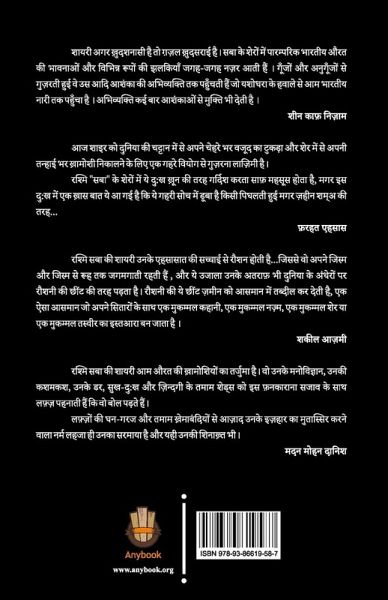 शायरी अगर ख़ुदशनासी है तो ग़ज़ल ख़ुदसराई है। सबा के शेरों में पारम्परिक भारतीय औरत
की भावनाओं और विभिन्न रूपों की झलकियाँ जगह-जगह नज़र आती हैं । गूँजों और अनुगूँजों से
गुज़रती हुई वे उस आदि आशंका की अभिव्यक्ति तक पहुँचती हैं जो यशोधरा के हवाले से आम भारतीय
नारी तक पहुँचा है । अभिव्यक्ति कई बार आशंकाओं से मुक्ति भी देती है ।
शीन काफ़ निज़ाम
आज शाइर को दुनिया की चट्टान में से अपने चेहरे भर वजूद का टुकड़ा और शेर में से अपनी
तन्हाई भर ख़ामोशी निकालने के लिए एक गहरे वियोग से गुज़रना लाज़िमी है।
रश्मि "सबा" के शेरों में ये दुःख ख़ून की तरह गर्दिश करता साफ़ महसूस होता है, मगर इस
दुःख में एक ख़ास बात ये आ गई है कि ये गहरी सोच में डूबा है किसी पिघलती हुई मगर ज़हीन शमूअ की
तरह...
फ़रहत एहसास
रश्मि सबा की शायरी उनके एहसासात की सच्चाई से रौशन होती है...जिससे वो अपने जिस्म
और जिस्म से रूह तक जगमगाती रहती हैं , और ये उजाला उनके अतराफ़ भी दुनिया के अंधेरों पर
रौशनी की छींट की तरह पड़ता है। रौशनी की ये छींट ज़मीन को आसमान में तब्दील कर देती है, एक
ऐसा आसमान जो अपने सितारों के साथ एक मुकम्मल कहानी, एक मुकम्मल नज़्म, एक मुकम्मल शेर या
एक मुकम्मल तस्वीर का इस्तआरा बन जाता है ।
शकील आज़मी
रश्मि सबा की शायरी आम औरत की ख़ामोशियों का तर्जुमा है। वो उनके मनोविज्ञान, उनकी
कशमकश, उनके डर, सुख-दुःख और ज़िन्दगी के तमाम शेड्स को इस फ़नकाराना सजाव के साथ
लफ़्ज़ पहनाती हैं कि वो बोल पड़ते हैं ।
लफ़्ज़ों की घन-गरज और तमाम ख़ेमाबंदियों से आज़ाद उनके इज़हार का मुतास्सिर करने
वाला नर्म लहजा ही उनका सरमाया है और यही उनकी शिनाख़्त भी।
मदन मोहन दानिश
Anybook
www.anybook.org
ISBN 978-93-86619-58-7